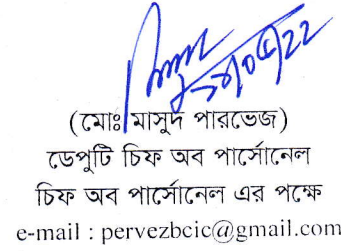 (মোঃ মাসুদ পারভেজ)
ডেপুটি চিফ অব পার্সোনেল
চিফ অব পার্সোনেল এর পক্ষে
e-mail : pervezbcic@gmail.com